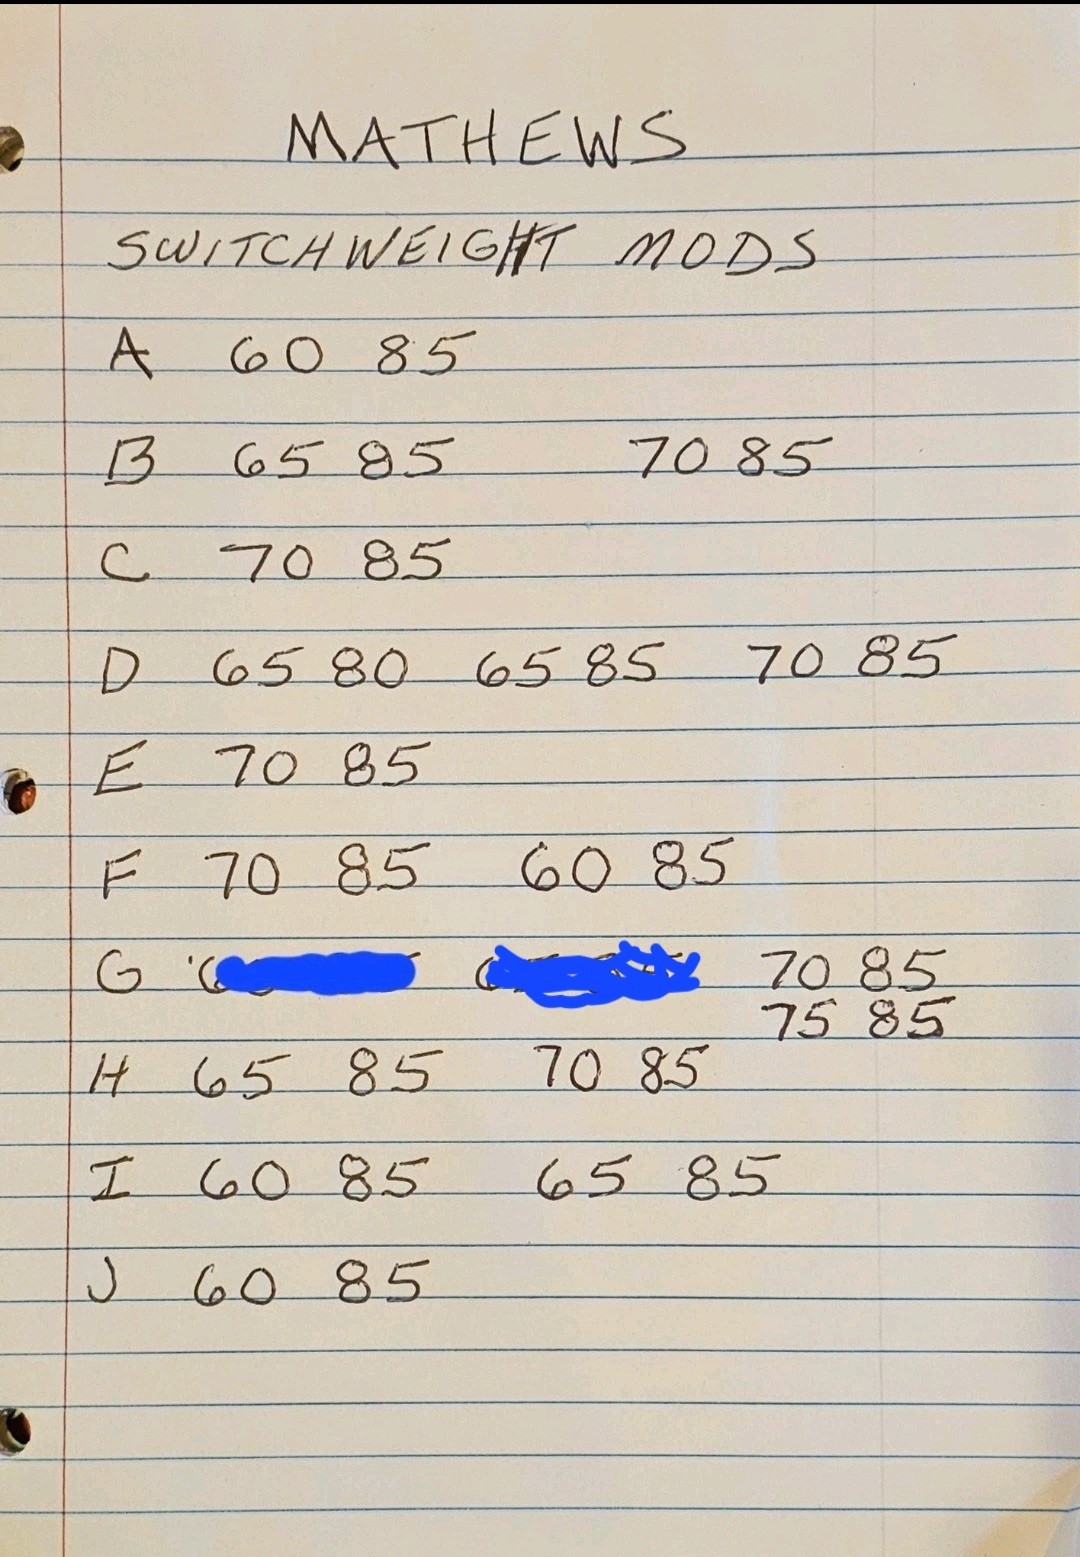 MATHEWS
SWITCHWEIGHT MODS
A 60 85
B 65 85 70 85
C 70 85
D 65 80 65 85 70 85
E 70 85
F 70 85 60 85
G 70 85
75 85
H 65 85 70 85
I 60 85 65 85
J 60 85